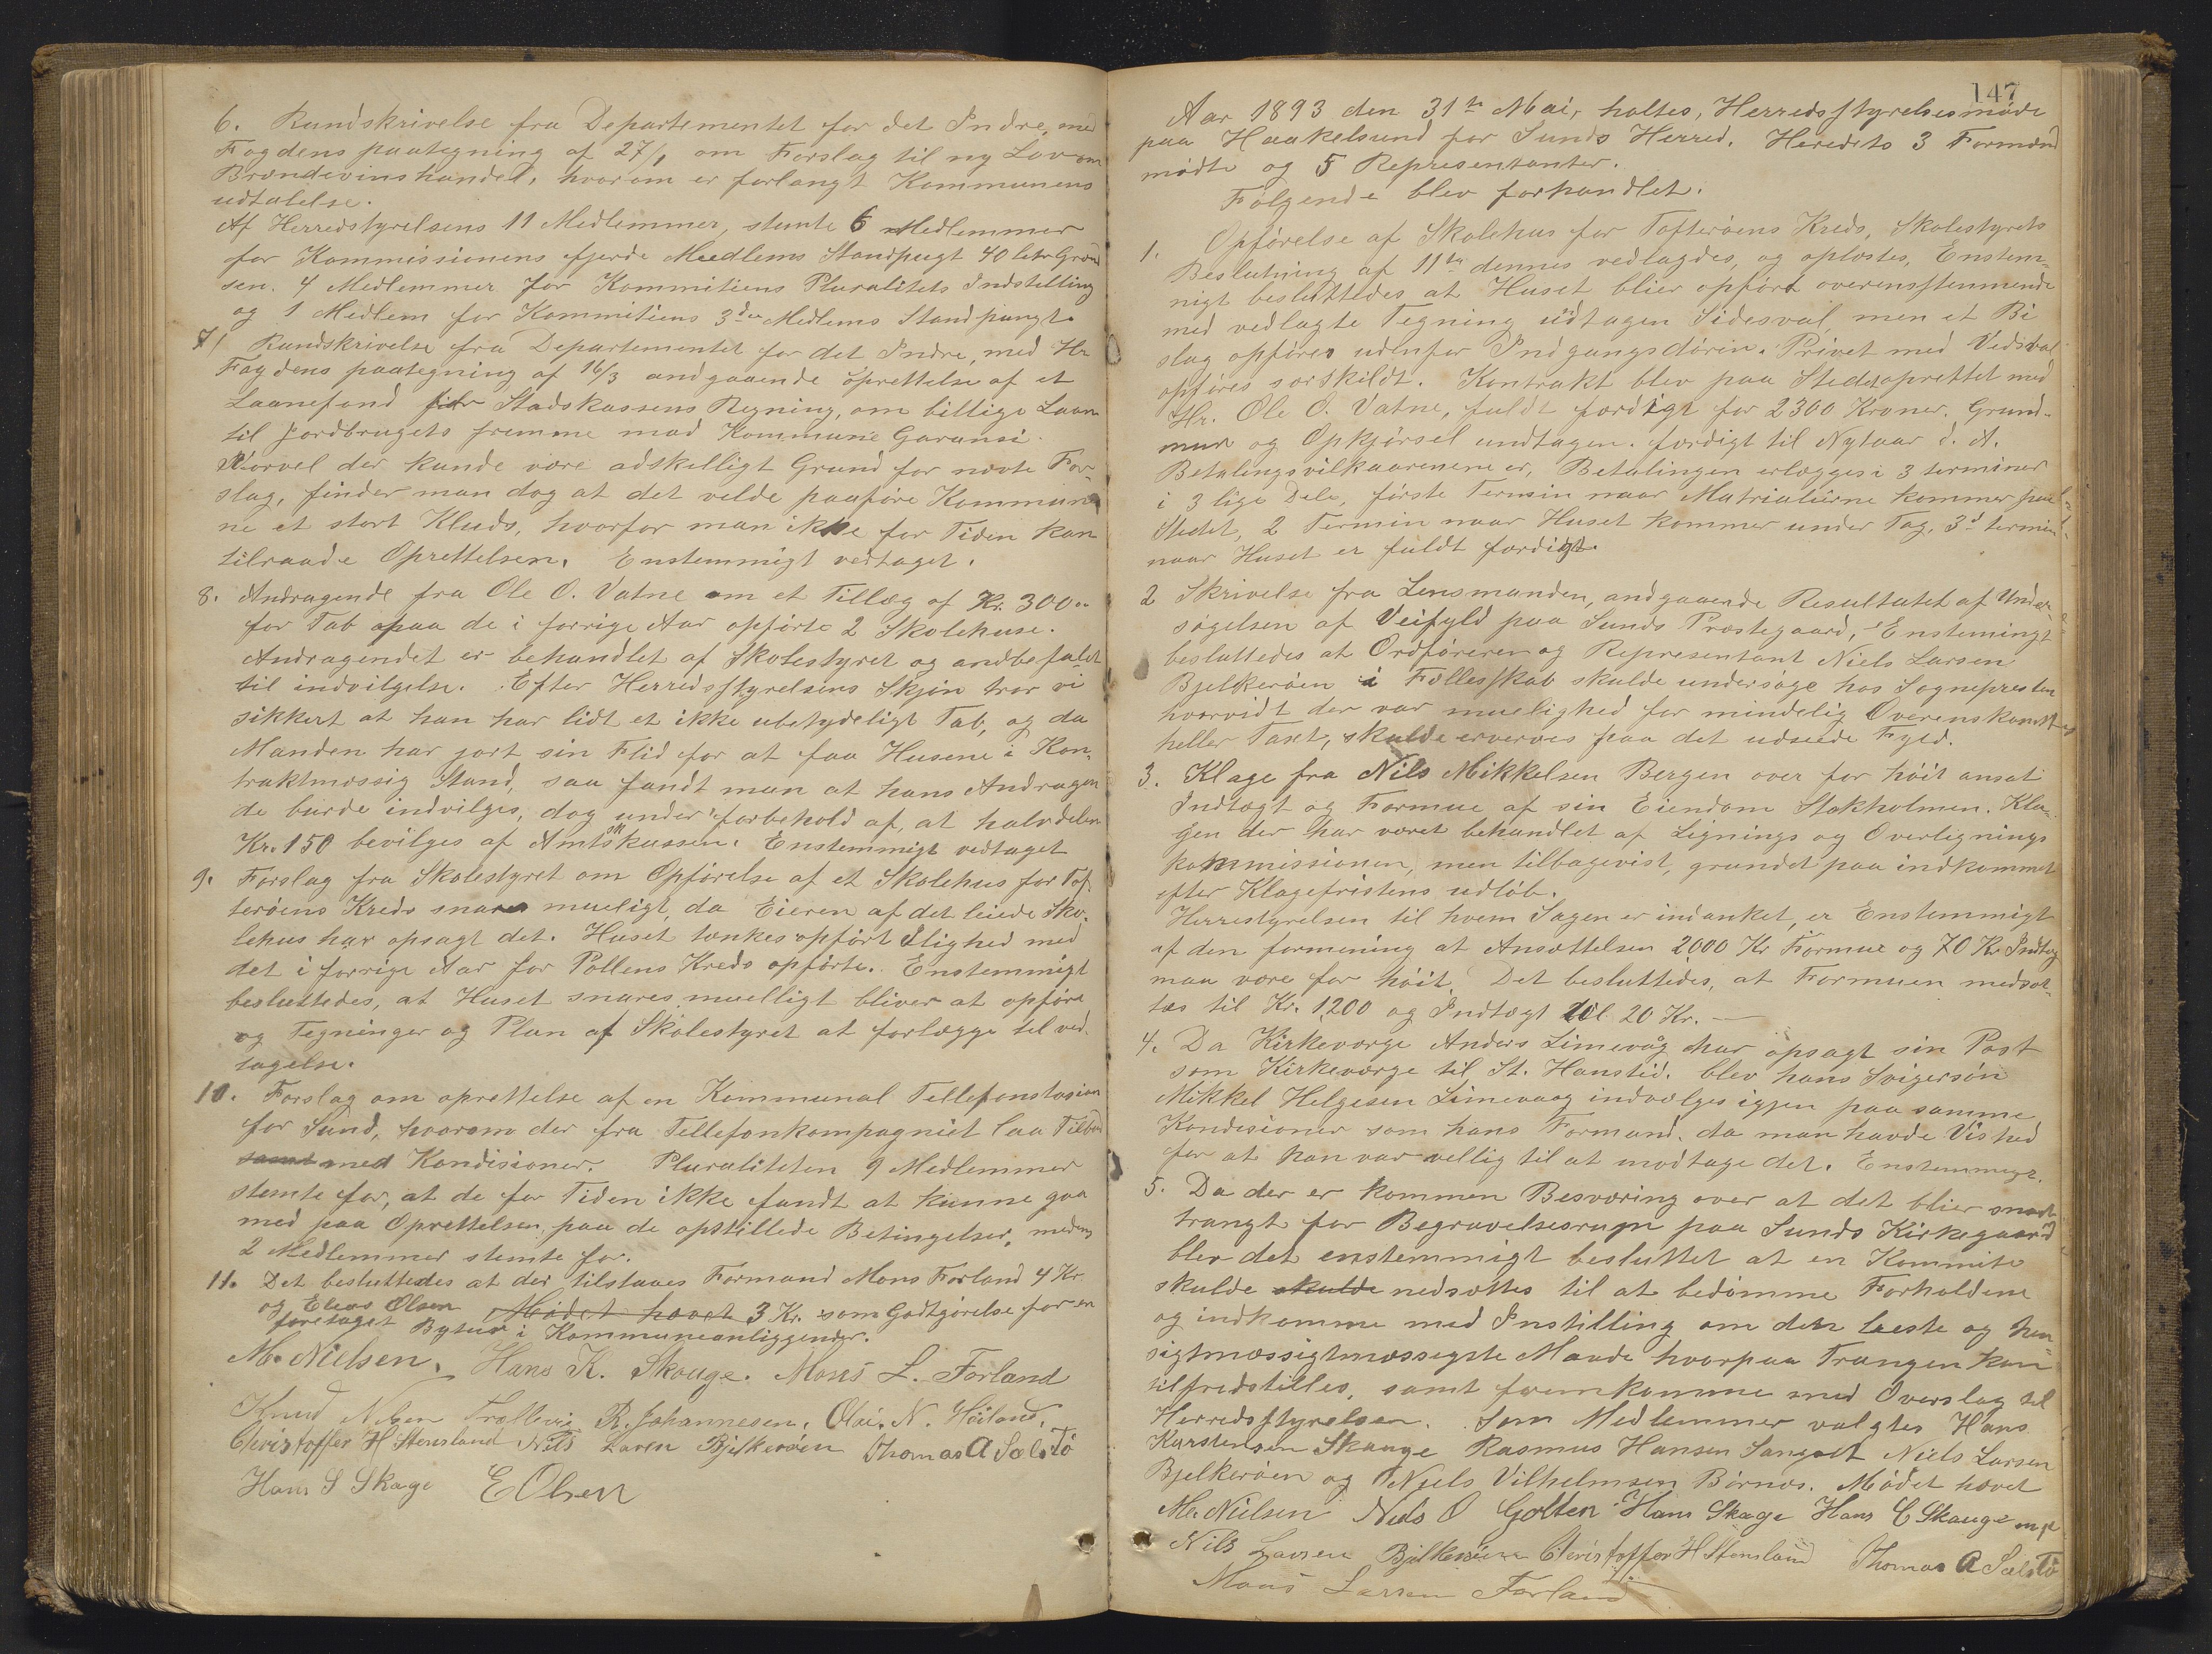 6. Rundskrivelse fra Departementet for det Indre, med
Fogdens paategning af 27/1 om Forslag til ny Lov om
Brændevinshandel, hvorom er forlangt Kommunens
udtalelse.
Af Herredstyrelsens 11 Medlemmer, stemte 6 Medlemmer
for Kommissionens fjerde Medlems Standpugt 40 liter Græn
sen. 4 Medlemmer for Kommitiens Pluralitets Indstilling
og 1 Medlem for Kommitiens 3die Medlems Standpungt.
7. Rundskrivelse fra Departementet for det Indre, med Hr.
Fogdens paategning af 16/3 andgaaende oprettelse af et
Laanefond for Stadskassens Regning, om billige Laan
til Jordbrugets fremme mod Kommune Garansi.
Hvorvel der kunde være adskelligt Grund for nævte For-
slag, finder man dog at det velde paaføre Kommun
ne et stort Kluds, hvorfor man ikke for Tiden kan
tilraade Oprettelsen. Enstemmigt vedtaget.
8. Andragende fra Ole O. Vatne om et Tillæg af Kr. 300 00
for Tab paa de i forrige Aar opførte 2 Skolehuse.
Andragendet er behandlet af Skolestyret og andbefalet
til indvilgelse. Efter Herredsstyrelsens Skjøn tror vi
sikkert at han har lidt et ikke ubetydeligt Tab, og da
Manden har gort sin Flid for at faa Husene i Kon-
traktmæssig Stand, saa fandt man at hans Andragen
de burde indvilges, dog under forbehold af, at halvdelen
Kr. 150 bevilges af Amtskassen. Enstemmigt vedtaget
9. Forslag fra Skolestyret om Opførelse af et Skolehus for Tof-
terøens Kreds snares mueligt, da Eieren af det leiede Sko-
lehus har opsagt det. Huset tænkes opført i lighed med
det i forrige Aar for Pollens Kreds opførte. Enstemmigt
besluttedes, at Huset snares muelligt bliver at opføre
og Tegninger og Plan af Skolestyret at forlægge til ved-
tagelse.
10. Forslag om oprettelse af en Kommunal Tellefonstasion
for Sund, hvorom der fra Tellefonkompagniet laa Tilbud
samt med Kondisioner. Pluraliteten 9 Medlemmer
stemte for, at de for Tiden ikke fandt at kunne gaa
med paa Oprettelsen paa de opstillede Betingelser, medens
2 Medlemmer stemte for.
11. Det besluttedes at der tilstaaes Formand Mons Forland 4 Kr.
og Elias Olsen Mødet hævet 3 Kr. som Godtgørelse for en
foretaget Bytur i Kommuneanliggender.
M. Nielsen. Hans K. Skouge. Mons L. Forland
Knud Nilsen Trællevig R. Johannesen. Olai. N. Høiland.
Christoffer H Stensland Nils Larsen Bjelkerøen Thomas A Sælstö
Hans S Skage E Olsen
147
Aar 1893 den 31te Mai, holtes, Herredsstyrelsesmøde
paa Haakelsund for Sunds Herred. Heredets 3 Formænd
mødte og 5 Representanter.
Følgende blev forhandlet.
1. Opførelse af Skolehus for Tofterøens Kreds, Skolestyrets
Beslutning af 11te dennes vedlagdes, og oplæstes, Enstem-
nigt besluttedes at Huset blier opført overensstemmende
med vedlagte Tegning udtagen Sidesval, men et Bi
slag opføres udenfor Indgangsdøren. Privet med Vedsval
opføres særskildt. Kontrakt blev paa Stedet oprettet med
Hr. Ole O. Vatne, fuldt færdigt for 2300 Kroner. Grund-
mur og Opkjørsel undtagen. færdigt til Nytaar d. A.
Betalingsvilkaarenene er, Betalingen erlægges i 3 terminer
i 3 lige Dele, første Termin naar Matrialierne kommer paa
Stedet, 2 Termin naar Huset kommer under Tag, 3d termin
naar Huset er fuldt færdigt.
2 Skrivelse fra Lensmanden, andgaaende Resultatet af Under-
søgelsen af Veifyld paa Sunds Præstegaard, Enstemingt
besluttedes at Ordføreren og Representant Niels Larsen
Bjelkerøen i Fællesskab skulde undersøge hos Sognepresten
hvorvidt der var muelighed for mindelig Overenskomst
heller Taxt, skulde erverves paa det udseede Fyld.
3. Klage fra Nils Mikkelsen Bergen over for høit ansat
Indtægt og Formue af sin Eiendom Stokholmen. Kla-
gen der har været behandlet af Lignings og Overlignings
kommissionen, men tilbagevist, grundet paa indkommet
efter Klagefristens udløb.
Herrestyrelsen til hvem Sagen er indanket, er Enstemmigt
af den formening at Ansættelsen 2000 Kr Formue og 70 Kr Indtæg
maa være for høit. Det besluttedes, at Formuen nedsæt-
tes til Kr. 1200 og Indtægt til 20 Kr. —
4. Da Kirkeværge Anders Limevåg har opsagt sin Post
som Kirkeværge til St. Hanstid. blev hans Svigersøn
Mikkel Helgesen Limevaag indvælges igjen paa samme
Kondisioner som hans Formand. da man havde Vished
for at han var vellig til at modtage det. Enstemmigt.
5. Da der er kommen Besværing over at det blier snart
trangt for Begravelsesrum paa Sunds Kirkegaard
blev det enstemmigt besluttet at en Kommite
skulde skulde nedsættes til at bedømme Forholdene
og indkomme med Instilling om den beste og hen-
sigtmæssigtmæssigste Maade hvorpaa Trangen kan
tilfredstilles, samt fremkomme med Overslag til
Herredsstyrelsen. Som Medlemmer valgtes Hans
Karstensen Skauge Rasmus Hansen Sangolt Niels Larsen
Bjelkerøen og Niels Vilhelmsen Børnæs. Mødet hævet
M. Nielsen Nils O Golten Hans Skage Hans C Skauge
Nils Larsen Bjelkerøen Christoffer H Stensland Thomas A Sælstö
Mons Larsen Forland